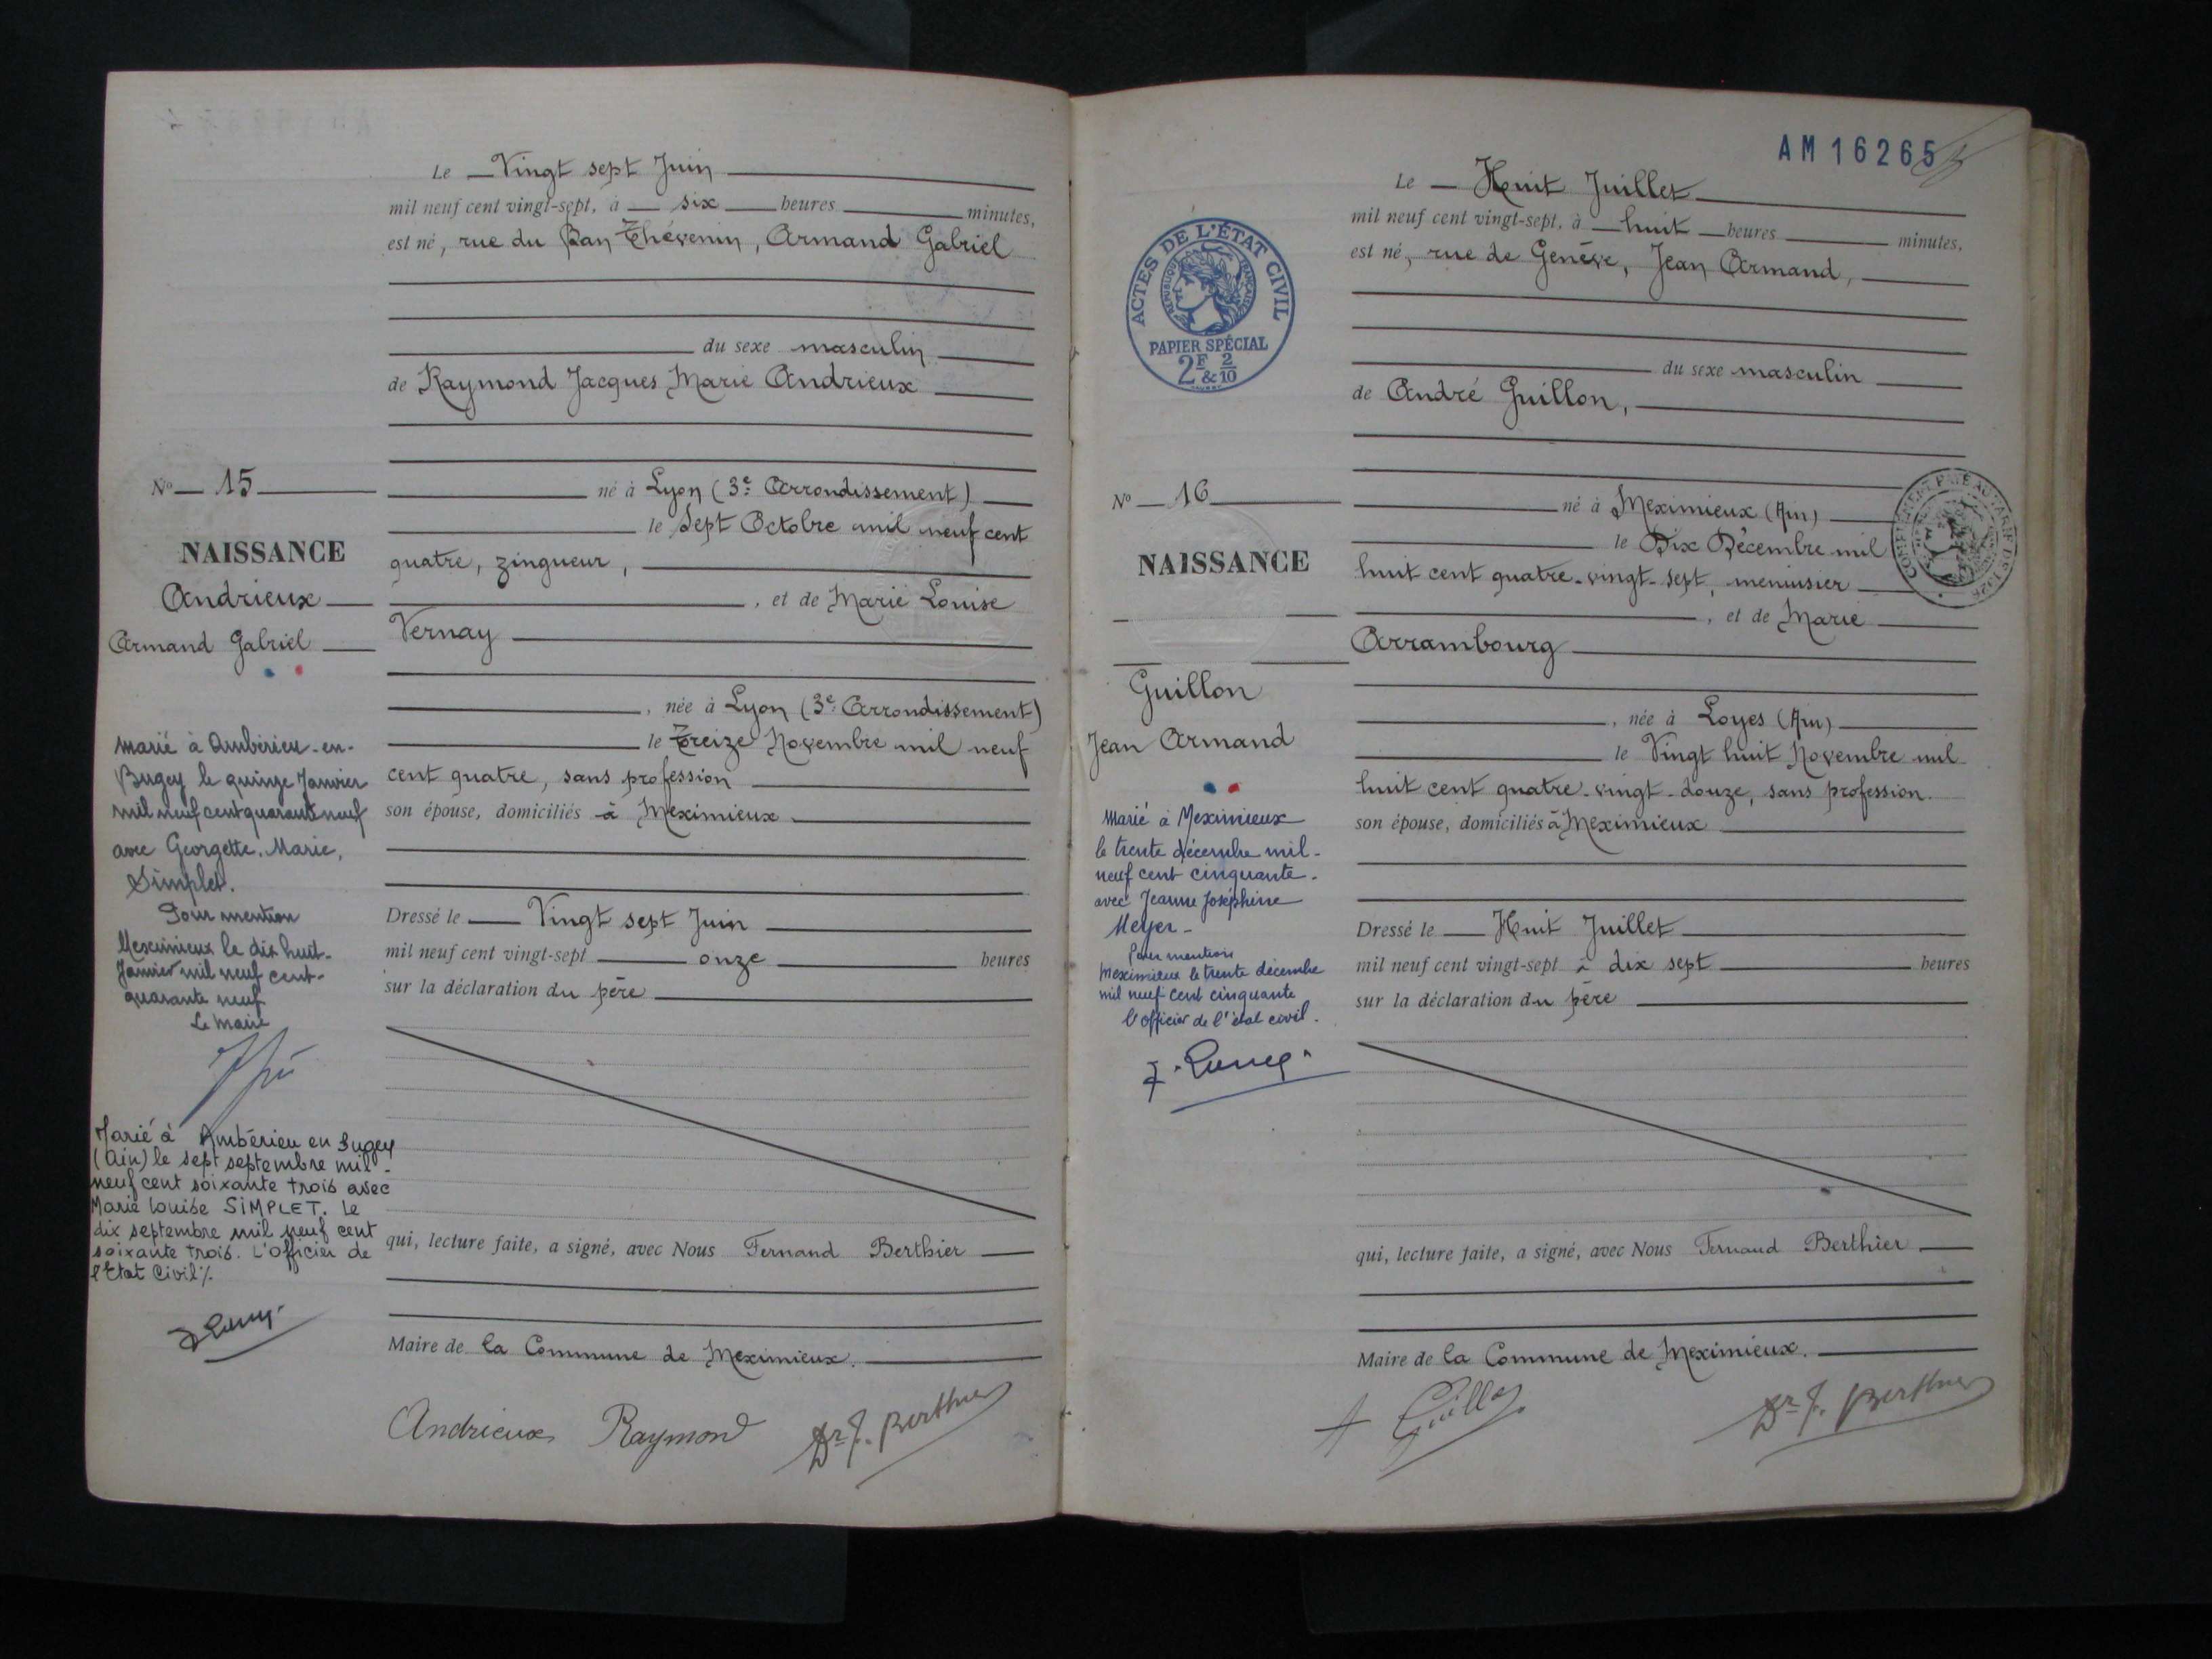 Le Vingt sept Juin
mil neuf cent vingt-sept, à six heures minutes,
est né, rue du Ban Thévenin, Armand Gabriel
du sexe masculin
de Raymond Jacques Marie Andrieux
né à Lyon (3e Arrondissement)
le Sept Octobre mil neuf cent
quatre, zingueur,
, et de Marie Louise
Vernay
, née à Lyon (3e Arrondissement)
le Treize Novembre mil neuf
cent quatre, sans profession
son épouse, domiciliés à Meximieux
Dressé le Vingt sept Juin
mil neuf cent vingt-sept onze heures
sur la déclaration du père
qui, lecture faite, a signé, avec Nous Fernand Berthier
Maire de la Commune de Meximieux.
Andrieux Raymond Dr F. Berthier
No 15
NAISSANCE
Andrieux
Armand Gabriel
Marié à Ambérieu-en-
Bugey le quinze Janvier
mil neuf cent quarante neuf
avec Georgette, Marie,
Simplet.
Pour mention
Meximieux le dix huit
Janvier mil neuf cent-
quarante neuf
Le Maire
Marié à Ambérieu en Bugey
(Ain) le sept septembre mil-
neuf cent soixante trois avec
Marie Louise SIMPLET. Le
dix septembre mil neuf cent
soixante trois. L'officier de
l'Etat Civil %.
AM 16265
Le Huit Juillet
mil neuf cent vingt-sept, à huit heures minutes,
est né, rue de Genève, Jean Armand,
du sexe masculin
de André Guillon,
né à Meximieux (Ain)
le Dix Décembre mil
huit cent quatre-vingt-sept, menuisier
, et de Marie
Arrambourg
, née à Loyes (Ain)
le Vingt huit Novembre mil
huit cent quatre-vingt-douze, sans profession.
son épouse, domiciliés à Meximieux
Dressé le Huit Juillet
mil neuf cent vingt-sept à dix sept heures
sur la déclaration du père
qui, lecture faite, a signé, avec Nous Fernand Berthier
Maire de la Commune de Meximieux.
A Guillon Dr F. Berthier
ACTES DE L'ÉTAT CIVIL
RÉPUBLIQUE FRANÇAISE
PAPIER SPÉCIAL
2F & 2/10
No 16
NAISSANCE
Guillon
Jean Armand
Marié à Meximieux
le trente décembre mil-
neuf cent cinquante-
avec Jeanne Joséphine
Meyer-
Pour mention
Meximieux le trente décembre
mil neuf cent cinquante
l'officier de l'état civil.